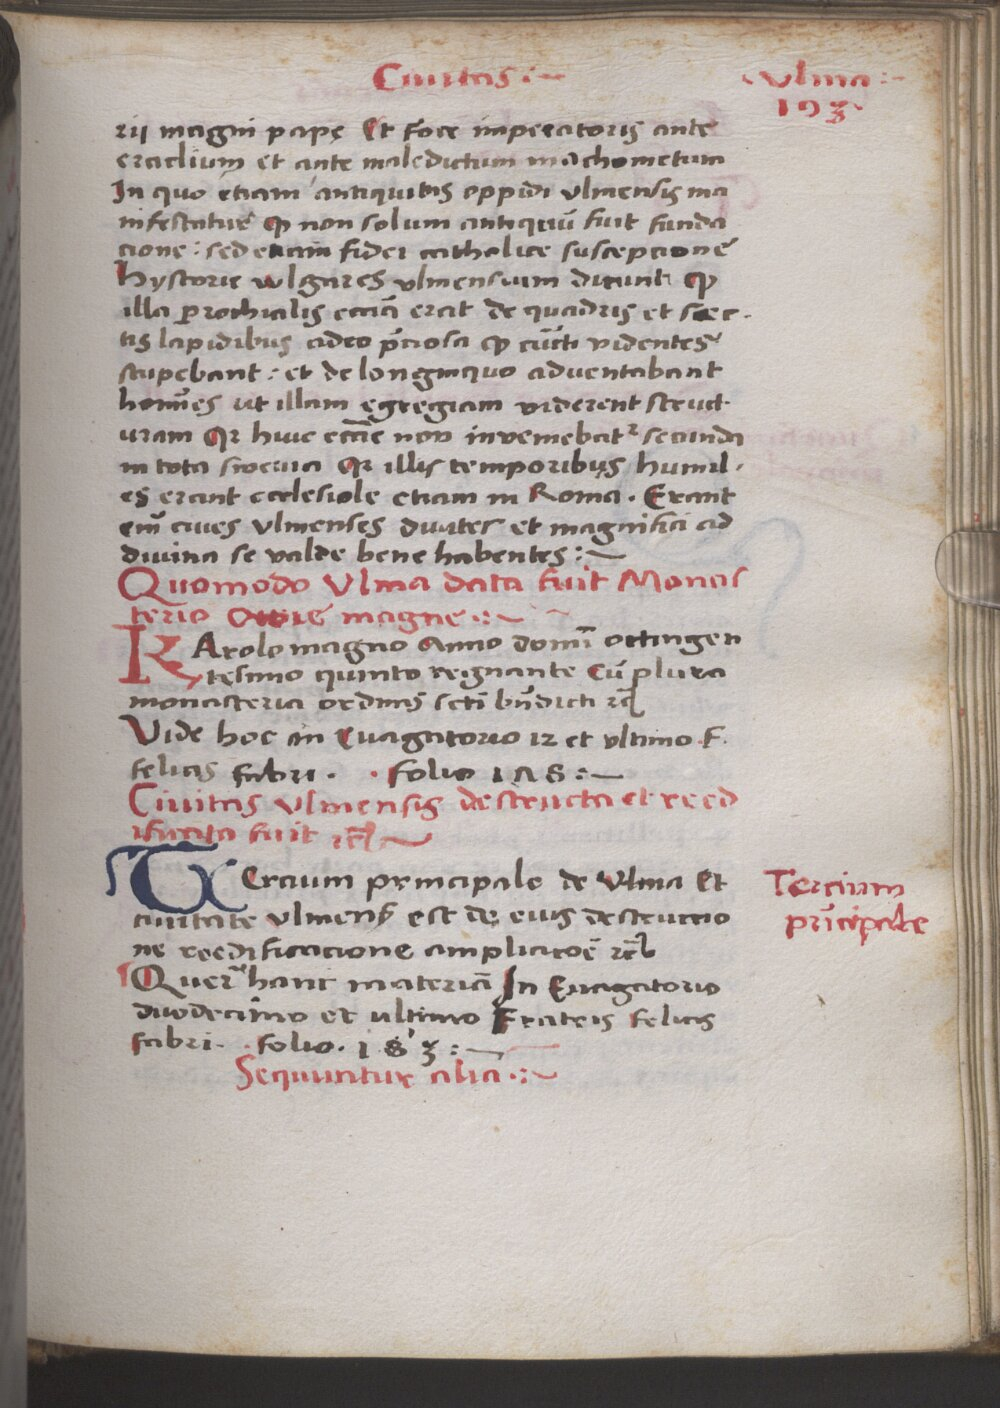 Ciuitas :~ Vlma :~
193
rii magni pape Et foce imperatoris ante
eraclium et ante maledictum machometum
In quo etiam antiquitas oppidi vlmensis ma
nifestatur ꝙ non solum antiquū fuit funda
cione : sed etiam fidei catholice suscepcione
hystorie wlgares vlmensium dicunt ꝙ
illa prochialis ecciā erat de quadris et sec-
tis lapidibus adeo p̄ciosa ꝙ cūcti videntes
stupebant : et de longinquo adventabant
homīes ut illam egregiam viderent struct-
uram Qr huic eccīe non inveniebatᷣ secunda
in tota swevia Qr illis temporibus humil-
es erant ecclesiole etiam in Roma . Erant
enī cives Vlmenses divites et magnifici ad
divina se valde bene habentes :~
Quomodo Vlma data fuit Monas
terio Owie magne :~
KArolo magno Anno domī octingen
tesimo quinto regnante cū plura
monasteria ordinis scti bn̄dicti rc̄
Vide hoc in Evagatorio 12 et vltimo F.
felicis fabri . folio 178 :~
Civitas vlmensis destructa et reed
ificata fuit rc̄ ~
TErcium principale de Vlma Et Tercium
civitate vlmensi est de eius destructio pri̅cipale
ne reedificacione ampliacōe rc̄
Quer hanc materiā In Evagatorio
duodecimo et ultimo Fratris felicis
fabri . folio . 183 :~
Sequuntur alia :~